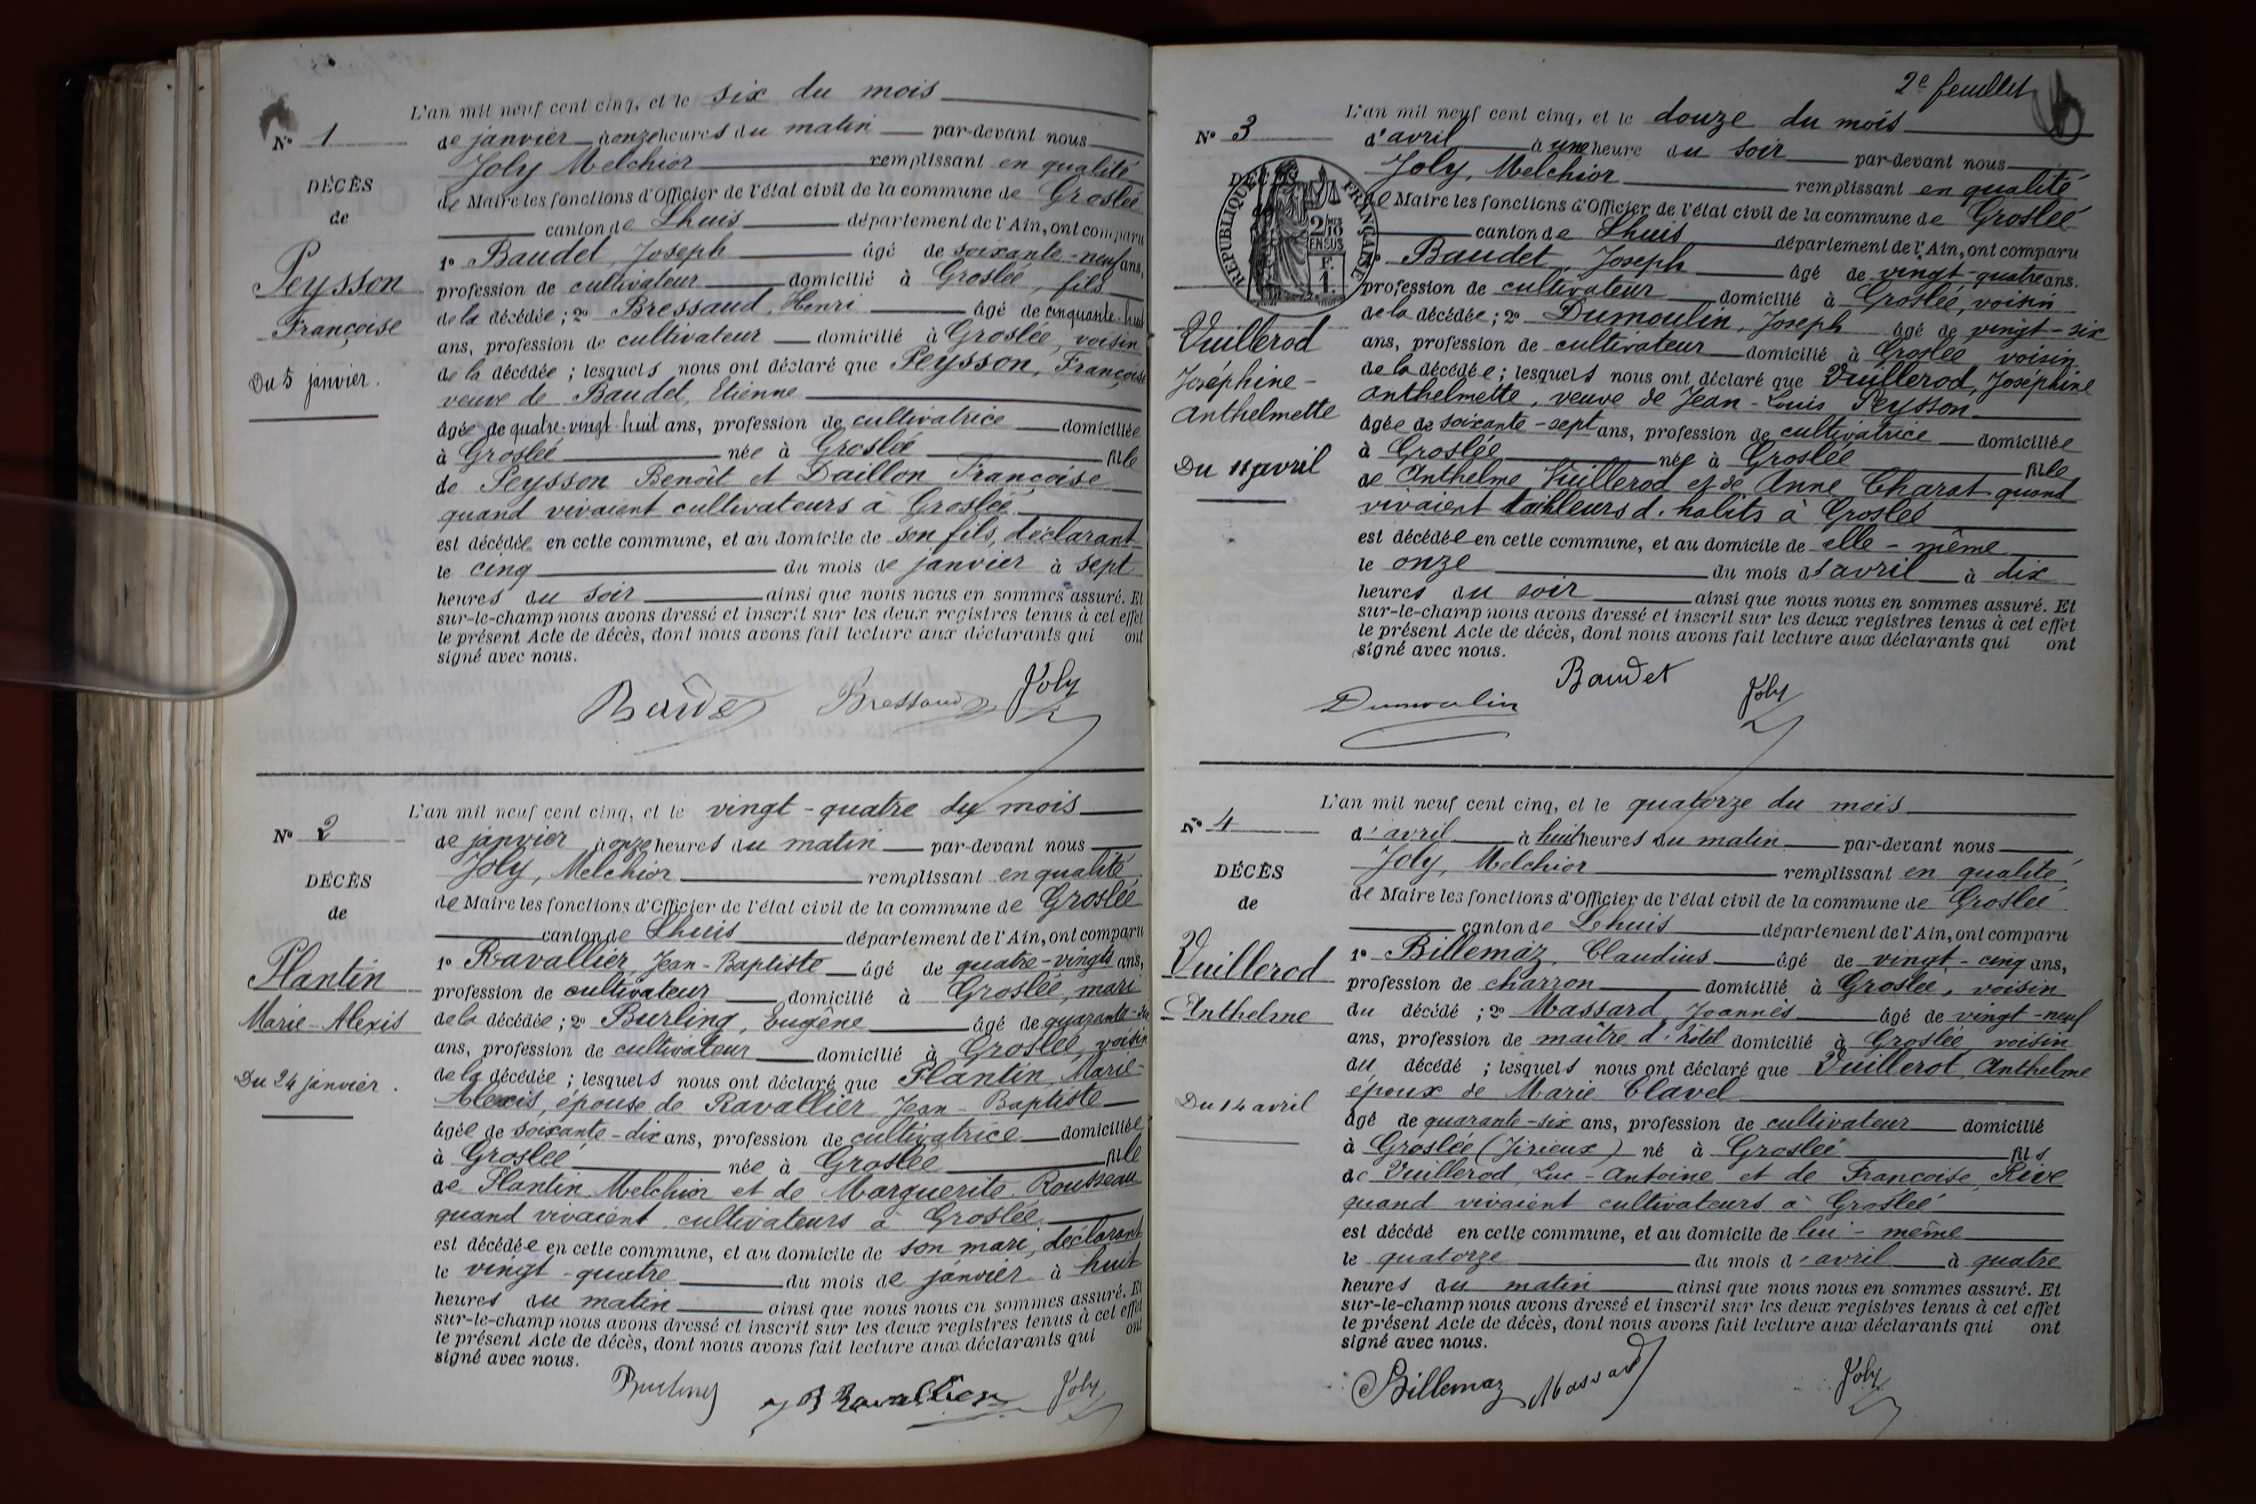 L'an mil neuf cent cinq, et le six du mois
N° 1
de janvier à onze heures du matin par-devant nous
Joly Melchior remplissant en qualité
DÉCÈS
de Maire les fonctions d'Officier de l'état civil de la commune de Groslée
de
canton de Lhuis département de l'Ain, ont comparu
1° Baudet, Joseph âgé de soixante-neuf ans,
Peysson
profession de cultivateur domicilié à Groslée, fils
de la décédée; 2° Bressaud, Henri âgé de cinquante-huit
Françoise
ans, profession de cultivateur domicilié à Groslée, voisin
de la décédée; lesquels nous ont déclaré que Peysson, Françoise
Du 5 janvier.
veuve de Baudet, Etienne
âgée de quatre-vingt-huit ans, profession de cultivatrice domiciliée
à Groslée née à Groslée fille
de Peysson Benoît et Daillon Françoise
quand vivaient cultivateurs à Groslée
est décédée en cette commune, et au domicile de son fils, déclarant
le cinq du mois de janvier à sept
heures du soir ainsi que nous nous en sommes assuré. Et
sur-le-champ nous avons dressé et inscrit sur les deux registres tenus à cet effet
le présent Acte de décès, dont nous avons fait lecture aux déclarants qui ont
signé avec nous.
Baudet Bressaud Joly
L'an mil neuf cent cinq, et le vingt-quatre du mois
N° 2
de janvier à onze heures du matin par-devant nous
Joly, Melchior remplissant en qualité
DÉCÈS
de Maire les fonctions d'Officier de l'état civil de la commune de Groslée
de
canton de Lhuis département de l'Ain, ont comparu
1° Ravallier, Jean-Baptiste âgé de quatre-vingts ans,
Plantin
profession de cultivateur domicilié à Groslée, mari
Marie-Alexis
de la décédée; 2° Burling, Eugène âgé de quarante-six
ans, profession de cultivateur domicilié à Groslée, voisin
de la décédée; lesquels nous ont déclaré que Plantin, Marie-
Du 24 janvier.
Alexis, épouse de Ravallier Jean-Baptiste
âgée de soixante-dix ans, profession de cultivatrice domiciliée
à Groslée née à Groslée fille
de Plantin Melchior et de Marguerite Rousseau
quand vivaient cultivateurs à Groslée
est décédée en cette commune, et au domicile de son mari, déclarant
le vingt-quatre du mois de janvier à huit
heures du matin ainsi que nous nous en sommes assuré. Et
sur-le-champ nous avons dressé et inscrit sur les deux registres tenus à cet effet
le présent Acte de décès, dont nous avons fait lecture aux déclarants qui ont
signé avec nous.
Burling JB Ravallier Joly
2e feuillet
L'an mil neuf cent cinq, et le douze du mois
N° 3
d'avril à une heure du soir par-devant nous
Joly, Melchior remplissant en qualité
DÉCÈS
RÉPUBLIQUE FRANÇAISE
2/10 EN SUS
F. 1.
de Maire les fonctions d'Officier de l'état civil de la commune de Groslée
canton de Lhuis département de l'Ain, ont comparu
Baudet, Joseph âgé de vingt-quatre ans.
profession de cultivateur domicilié à Groslée, voisin
de la décédée; 2° Dumoulin, Joseph âgé de vingt-six
Vuillerod
ans, profession de cultivateur domicilié à Groslée voisin
Joséphine-
de la décédée; lesquels nous ont déclaré que Vuillerod, Joséphine
Anthelmette
Anthelmette, veuve de Jean-Louis Peysson
âgée de soixante-sept ans, profession de cultivatrice domiciliée
Du 11 avril
à Groslée née à Groslée fille
de Anthelme Vuillerod et de Anne Charat quand
vivaient tailleurs d'habits à Groslée
est décédée en cette commune, et au domicile de elle-même
le onze du mois d'avril à dix
heures du soir ainsi que nous nous en sommes assuré. Et
sur-le-champ nous avons dressé et inscrit sur les deux registres tenus à cet effet
le présent Acte de décès, dont nous avons fait lecture aux déclarants qui ont
signé avec nous.
Dumoulin Baudet Joly
L'an mil neuf cent cinq, et le quatorze du mois
N° 4
d'avril à huit heures du matin par-devant nous
Joly, Melchior remplissant en qualité
DÉCÈS
de Maire les fonctions d'Officier de l'état civil de la commune de Groslée
de
canton de Lhuis département de l'Ain, ont comparu
1° Billemaz, Claudius âgé de vingt-cinq ans,
Vuillerod
profession de charron domicilié à Groslée, voisin
Anthelme
du décédé; 2° Massard, Joannès âgé de vingt-neuf
ans, profession de maître d'hôtel domicilié à Groslée voisin
du décédé; lesquels nous ont déclaré que Vuillerot, Anthelme
Du 14 avril
époux de Marie Clavel
âgé de quarante-six ans, profession de cultivateur domicilié
à Groslée (Jirieux) né à Groslée fils
de Vuillerod, Luc-Antoine et de Françoise Rive
quand vivaient cultivateurs à Groslée
est décédé en cette commune, et au domicile de lui-même
le quatorze du mois d'avril à quatre
heures du matin ainsi que nous nous en sommes assuré. Et
sur-le-champ nous avons dressé et inscrit sur les deux registres tenus à cet effet
le présent Acte de décès, dont nous avons fait lecture aux déclarants qui ont
signé avec nous.
Billemaz Massard Joly